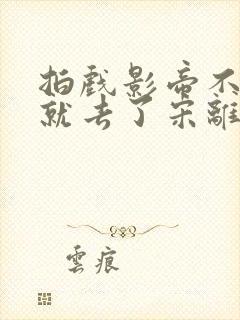 拍戲影帝不
就去了宋離
雲痕